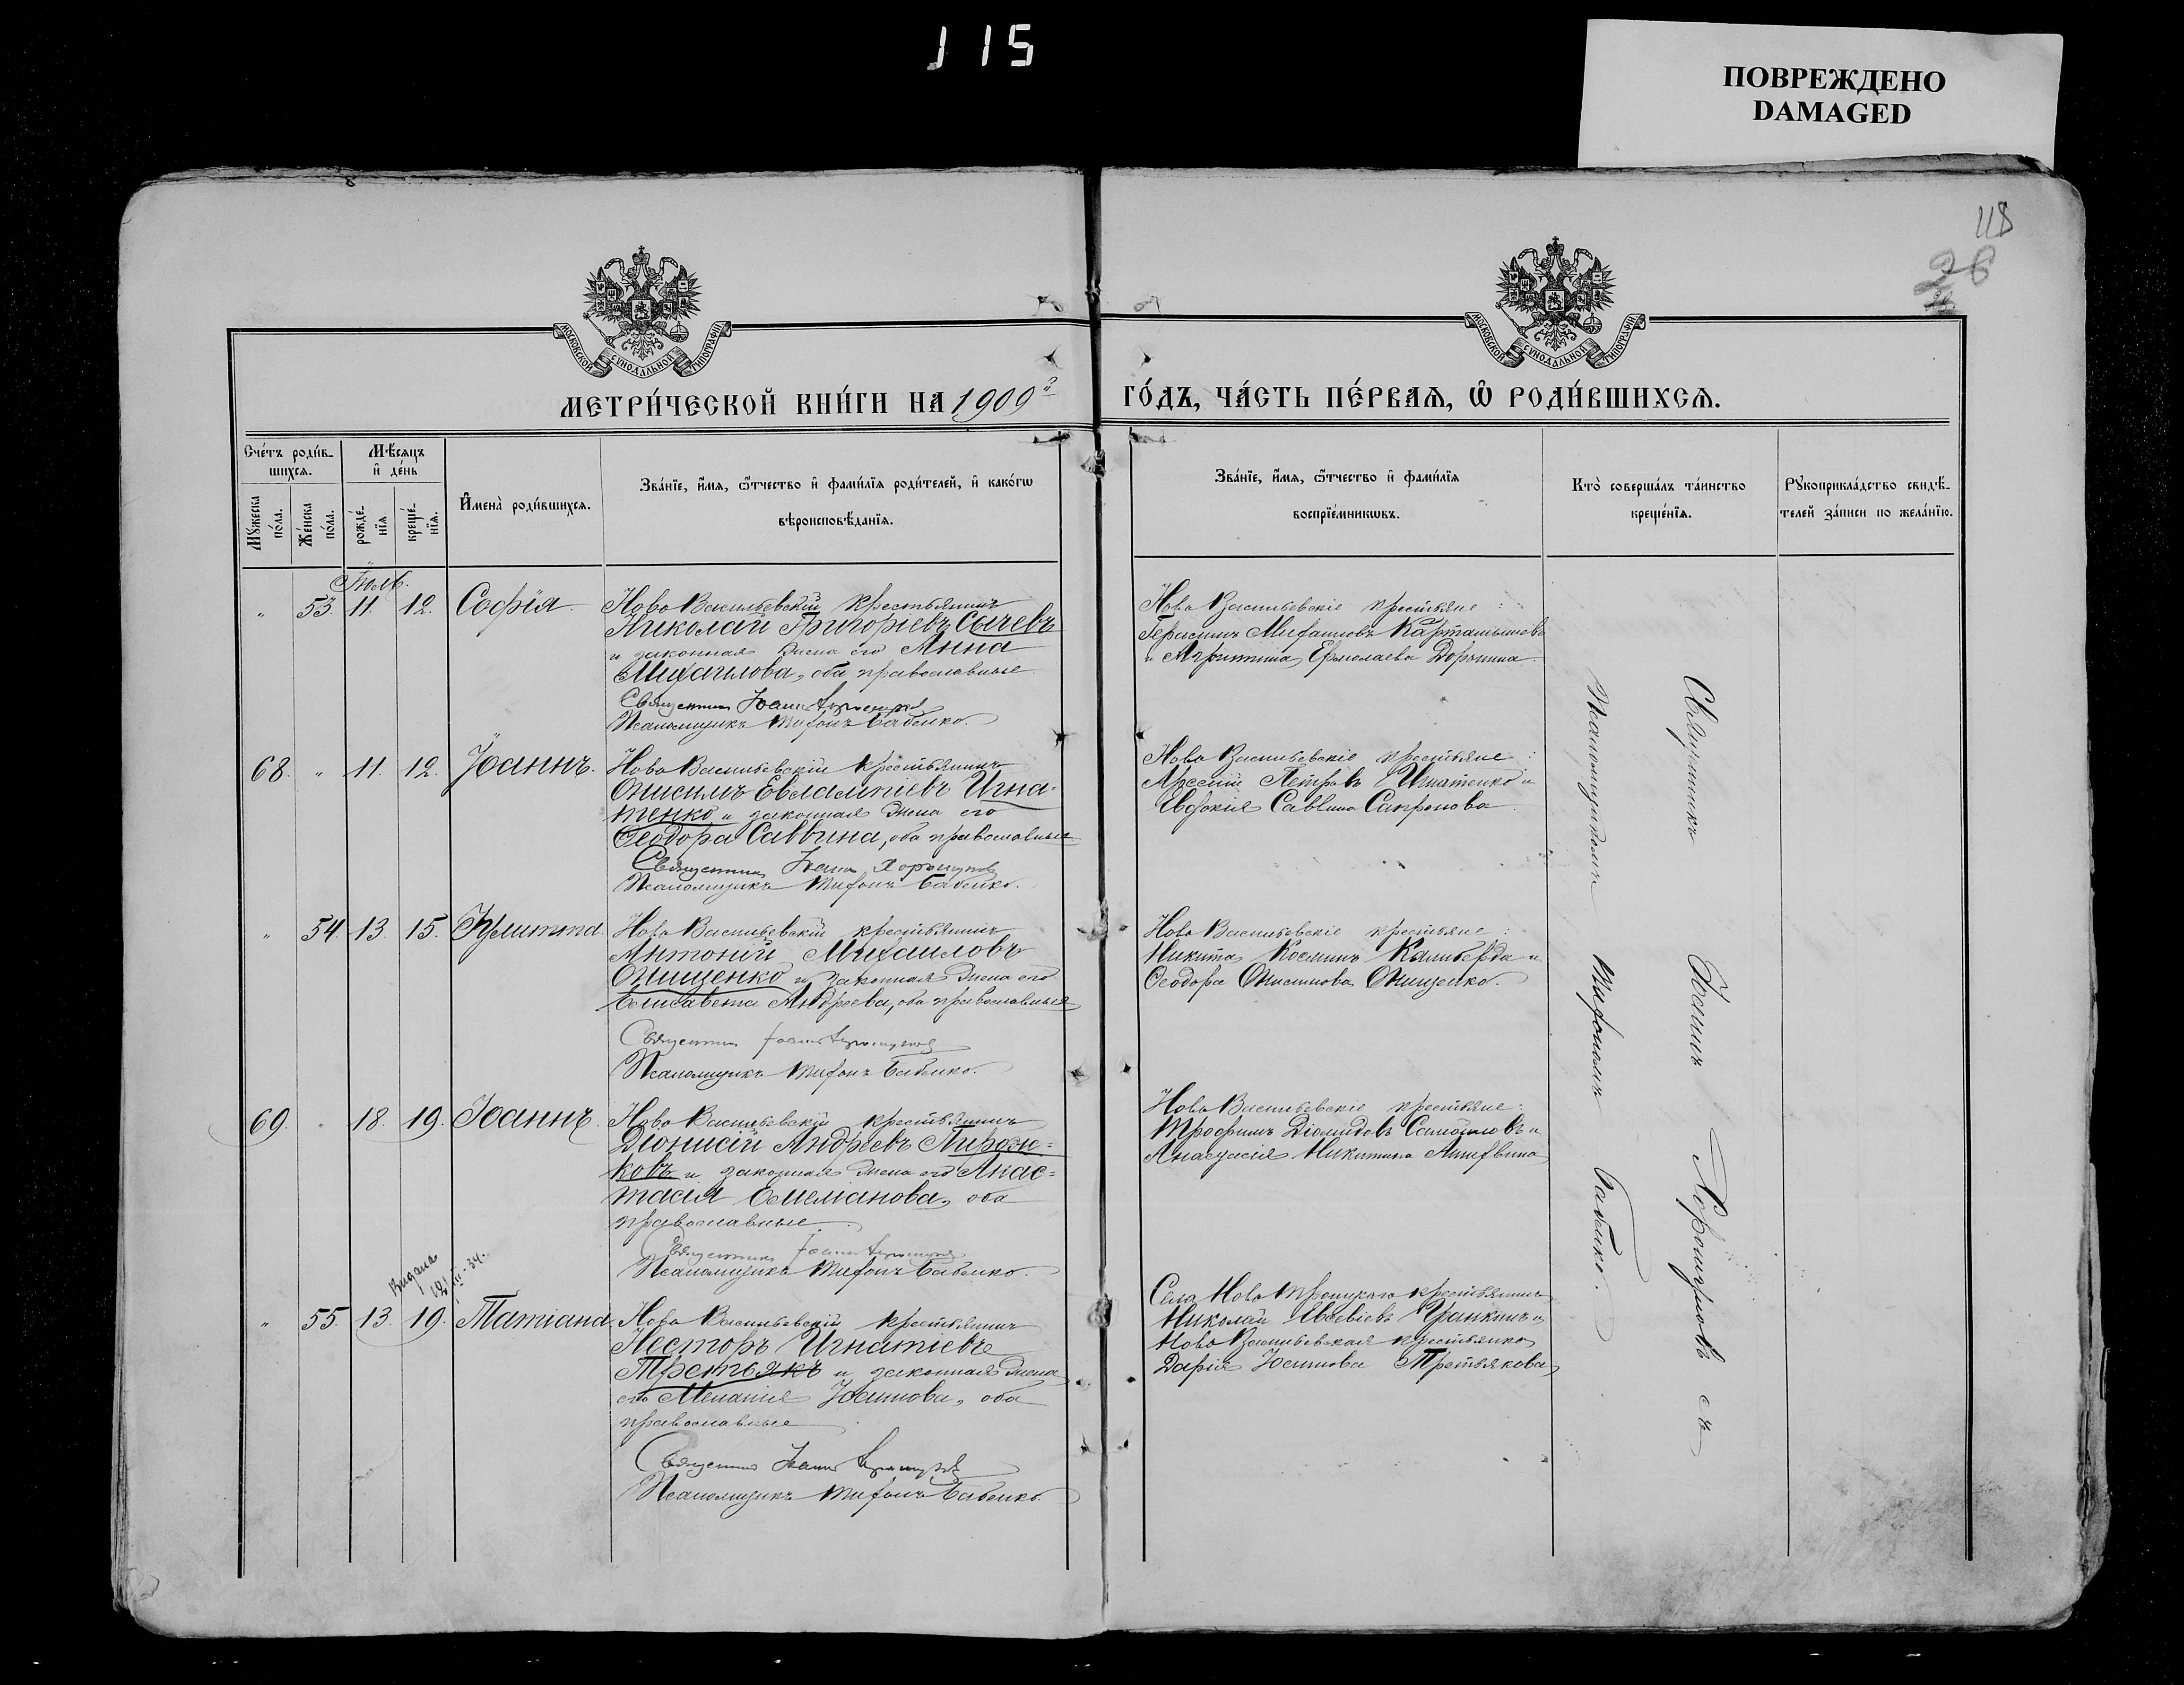 115
ПОВРЕЖДЕНО
DAMAGED
118
26
МОСКОВСКОЙ СѴНОДАЛЬНОЙ ТИПОГРАФІИ
МОСКОВСКОЙ СѴНОДАЛЬНОЙ ТИПОГРАФІИ
МЕТРИ́ЧЕСКОЙ КНИ́ГИ НА 1909 ГО́ДЪ, ЧА́СТЬ ПЕ́РВАѦ, Ѡ҆ РОДИ́ВШИХСѦ.
Сче́тъ роди́в-
шихсѧ.
Мѣ́сѧцъ
и҆ де́нь
Мꙋ́жеска
по́ла.
Же́нска
по́ла.
рожде́-
нїѧ
креще́-
нїѧ.
И҆мена̀ роди́вшихсѧ.
Зва́нїе, и҆́мѧ, ѻ҆́тчество и҆ фами́лїѧ роди́телей, и҆ како́гѡ
вѣроисповѣ́данїѧ.
Зва́нїе, и҆́мѧ, ѻ҆́тчество и҆ фами́лїѧ
воспрїе́мникѡвъ.
Кто̀ соверша́лъ та́инство
креще́нїѧ.
Рꙋкоприкла́дство свидѣ́-
телей за́писи по жела́нїю.
Іюль.
„ 53. 11. 12. Софія.
Ново Васильевскій крестьянинъ
Николай Григоріевъ Сычевъ
и законная жена его Анна
Михаилова, оба православные
Священникъ Іоаннъ Хорошуновъ
Псаломщикъ Тифонъ Бабенко.
Ново Васильевскіе крестьяне:
Герасимъ Михаиловъ Карташниковъ
и Агриппина Ермолаева Доронина
68. „ 11. 12. Іоаннъ.
Ново Васильевскій крестьянинъ
Онисимъ Евлампіевъ Игна-
тенко и законная жена его
Ѳеодора Саввина, оба православные
Священникъ Іоаннъ Хорошуновъ
Псаломщикъ Тифонъ Бабенко.
Ново Васильевскіе крестьяне:
Арсеній Петровъ Игнатенко и
Евдокія Саввина Сапронова
„ 54. 13. 15. Іулитта.
Ново Васильевскій крестьянинъ
Антоній Михаиловъ
Онищенко и законная жена его
Елисавета Андреева, оба православные
Священникъ Іоаннъ Хорошуновъ
Псаломщикъ Тифонъ Бабенко.
Ново Васильевскіе крестьяне:
Никита Косминъ Калиберда и
Ѳеодора Онисимова Онищенко.
69. „ 18. 19. Іоаннъ.
Ново Васильевскій крестьянинъ
Діонисій Андреевъ Пирож-
ковъ и законная жена его Анас-
тасія Емеліанова, оба
православные
Священникъ Іоаннъ Хорошуновъ
Псаломщикъ Тифонъ Бабенко.
Ново Васильевскіе крестьяне:
Трофимъ Діомидовъ Самойловъ и
Анастасія Никитина
„ 55. 13. 19. Татіана
Ново Васильевскій крестьянинъ
Несторъ Игнатіевъ
Третьякъ и законная жена
его Меланія Іоаннова, оба
православные
Священникъ Іоаннъ Хорошуновъ
Псаломщикъ Тифонъ Бабенко.
Села Ново Троицкаго крестьянинъ
Николай Евсевіевъ и
Ново Васильевская крестьянка
Дарія Іоаннова Третьякова
Священникъ Іоаннъ Хорошуновъ съ
Псаломщикомъ Тифономъ Бабенко.